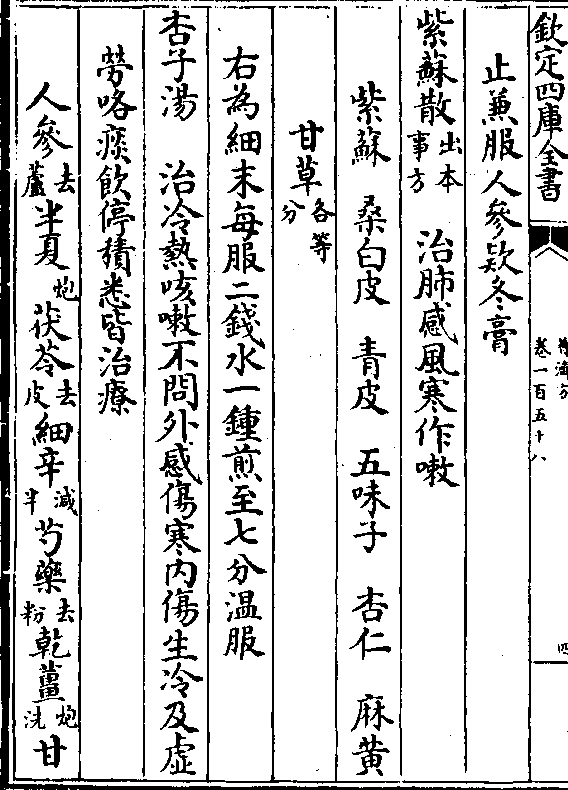 欽定四庫全書
普濟方
卷一百五十八
四
止兼服人參欵冬膏
紫蘇散出本事方 治肺感風寒作嗽
紫蘇 桑白皮 青皮 五味子 杏仁 麻黄
甘草各等分
右為細末每服二錢水一鍾煎至七分温服
杏子湯 治冷熱咳嗽不問外感傷寒内傷生冷及虛
勞咯痰飲停積悉皆治療
人參去蘆半夏炮茯苓去皮細辛減半芍藥去粉乾薑炮洗甘